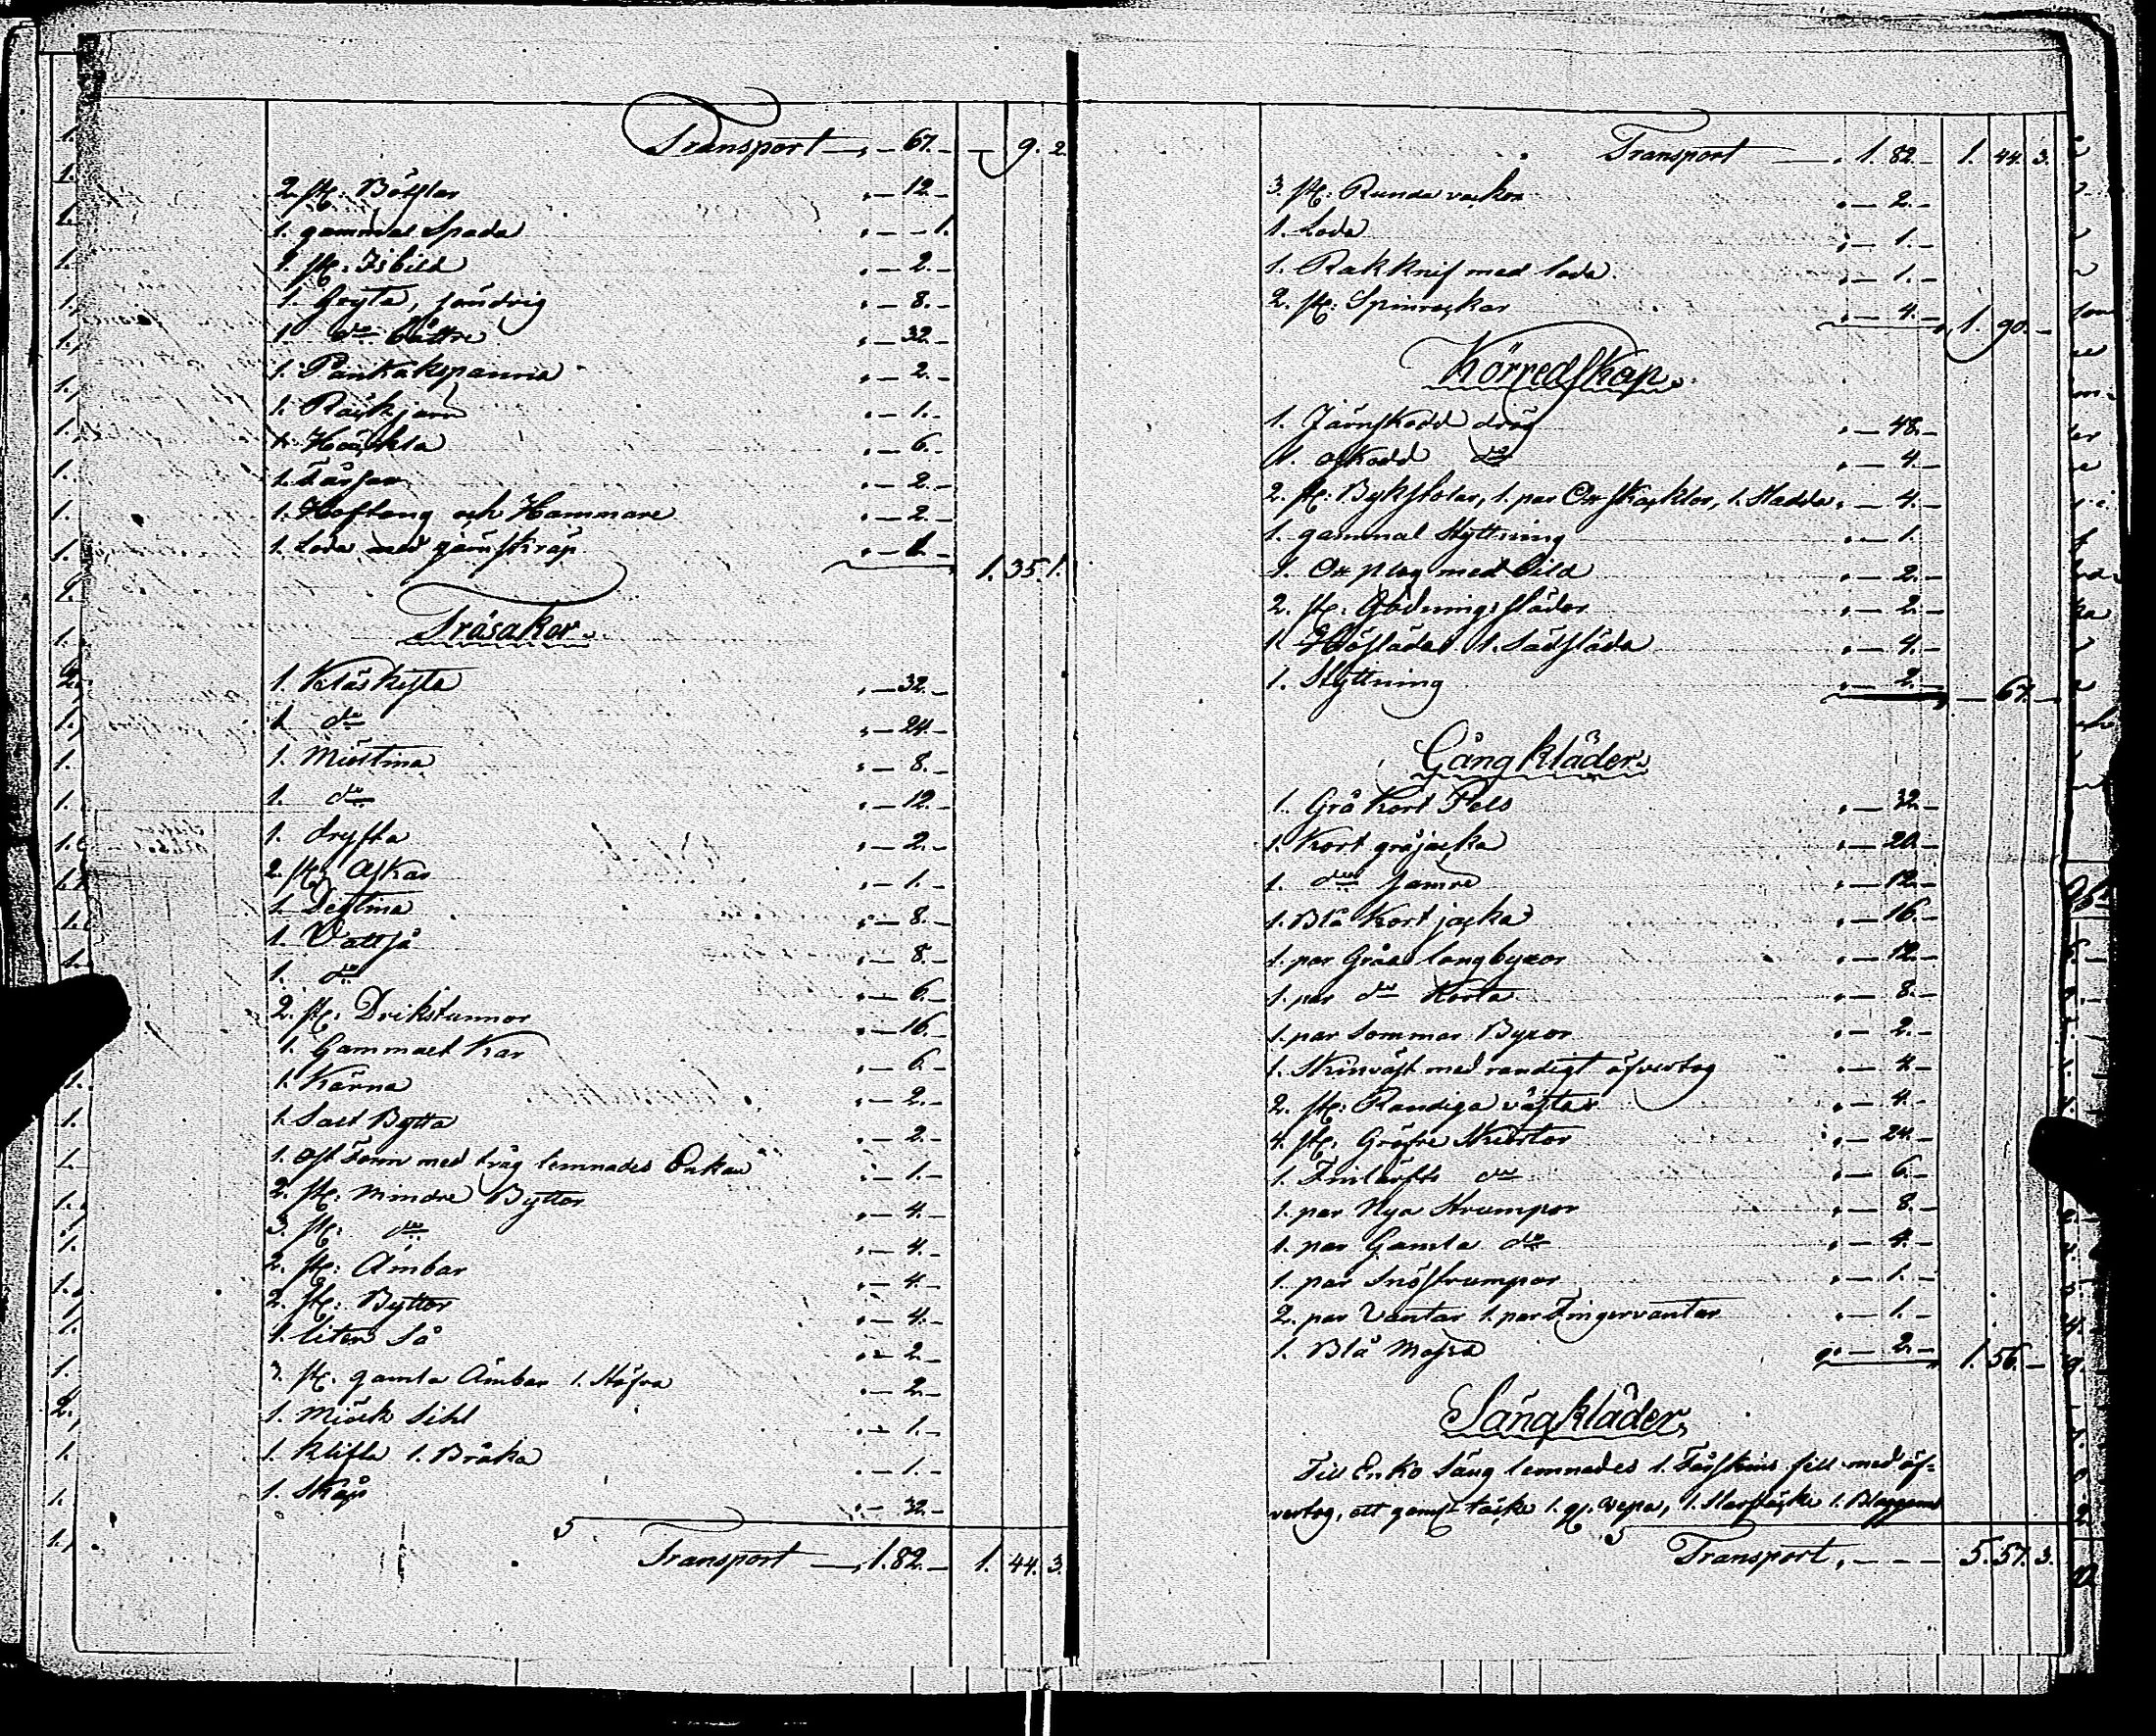 Transport — „ — 67. — — 9. 2.
2. st: Bötslar „ — 12. —
1. gammal Spada „ — — 1.
2. st: Isbild „ — 2. —
1. Gryta, söndrig „ — 8. —
1. do bättre „ — 32. —
1. Pankakspanna „ — 2. —
1. Räckjern „ — 1. —
1. Häckla „ — 6. —
1. Fårsax „ — 2. —
1. Hoftong och Hammare „ — 2. —
1. Loda med gärnskrap „ — 1. — 1. 35. 1.
Träsaker.
1. Kläskista „ — 32. —
1. do „ — 24. —
1. Miöltina „ — 8. —
1. do „ — 12. —
1. dryfta „ — 2. —
2. st: Askar „ — 1. —
1. Degtina „ — 8. —
1. Vattså „ — 8. —
1. do „ — 6. —
2. st: Drikstunnor „ — 16. —
1. Gammalt Kar „ — 6. —
1. Kärna „ — 2. —
1. Salt Bytta „ — 2. —
1. Ost Form med tråg lemnades Enkan „ — 1. —
2. st: Mindre Byttor „ — 4. —
3. st: do „ — 4. —
2. st: Ämbar „ — 4. —
2. st: Byttor „ — 4. —
1. liten Så „ — 2. —
3. st: gamla Ämbar 1. Stäfva „ — 2. —
1. Miölk Sihl „ — 1. —
1. Klifta 1. Bråka „ — 1. —
1. Skåp „ — 32. —
Transport — „ 1. 82. — 1. 44. 3.
Transport — „ 1. 82. — 1. 44. 3.
3. st: Runda vackor „ — 2. —
1. Loda „ — 1. —
1. Rakknif med loda „ — 1. —
2. st: Spinrockar „ — 4. — 1. 90. —
Körredskap.
1. Järnskodd drög „ — 48. —
1. oskodd do „ — 4. —
2. st: Bykstolar, 1. par Ox skacklor, 1. Stadda „ — 4. —
1. gammal Styttning „ — 1.
1. Ox plog med Bild „ — 2. —
2. st: Gödningsslädor „ — 2. —
1. Höslade 1. Sädsläde „ — 4. —
1. Styttning „ — 2. — — 67. —
Gångkläder.
1. Grå Kort Pels „ — 32. —
1. Kort gråjacka „ — 20. —
1. do samre „ — 12. —
1. Blå Kort jacka „ — 16. —
1. par Gråa longbyxor „ — 12. —
1. par do Korta „ — 8. —
1. par Sommar Byxor „ — 2. —
1. Skinväst med randigt öfvertog „ — 4. —
2. st: Randiga västar „ — 4. —
4. st: Gröfre Skiortor „ — 24. —
1. Finlärfts do „ — 6. —
1. par Nya Strumpor „ — 8. —
1. par Gamla do „ — 4. —
1. par Snöstrumpor „ — 1. —
2. par Vantar 1. par Fingervantar „ — 1. —
1. Blå Mössa „ — 2. — 1. 56. —
Sängkläder.
Till Enko Säng lemnades 1. Fårskins fell med öf-
vertog, ett gam:t täcke 1. gl. vepa, 1. Slarftäcke 1. Blaggarns
Transport, — — — 5. 57. 3.